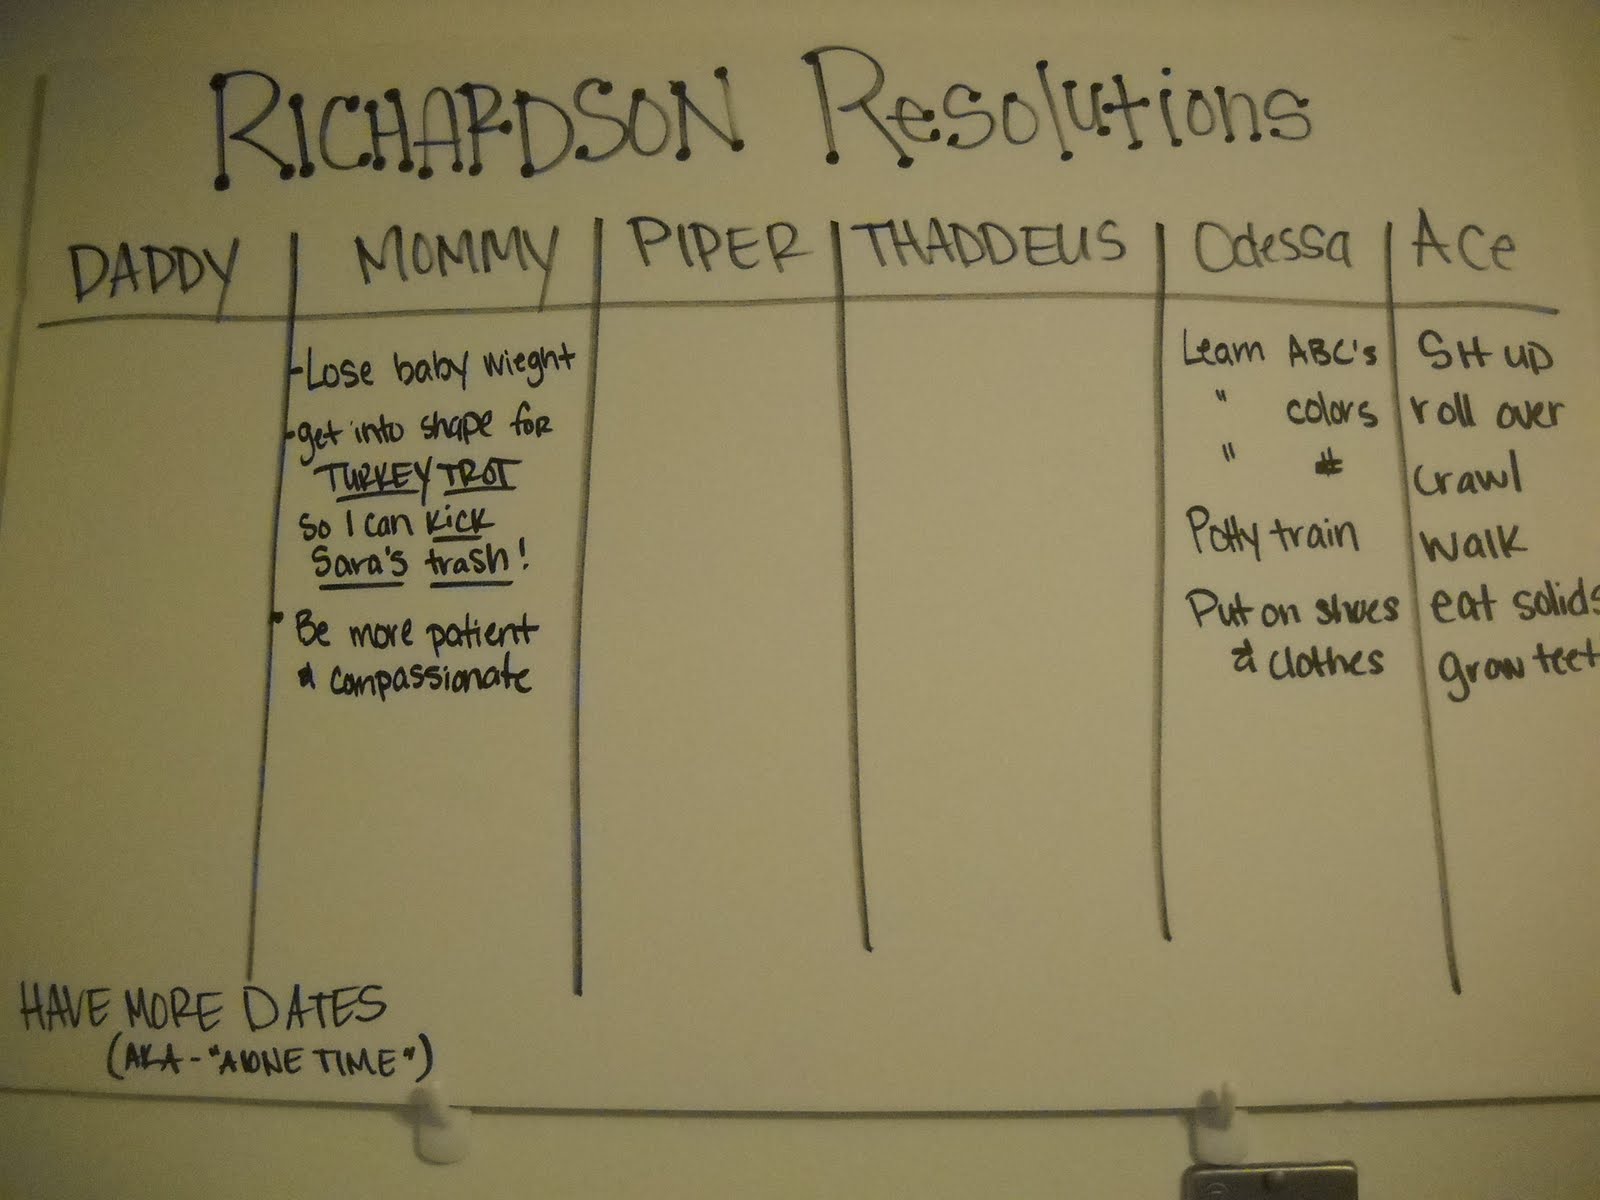 RICHARDSON Resolutions
DADDY MOMMY PIPER THADDEUS Odessa Ace
-Lose baby wieght
-get into shape for
TURKEY TROT
so I can kick
Sara's trash!
• Be more patient
& compassionate
Learn ABC's
" colors
" #
Potty train
Put on shoes
& clothes
Sit up
roll over
crawl
walk
eat solids
grow teet
HAVE MORE DATES
(AKA - "AlONE TIME")